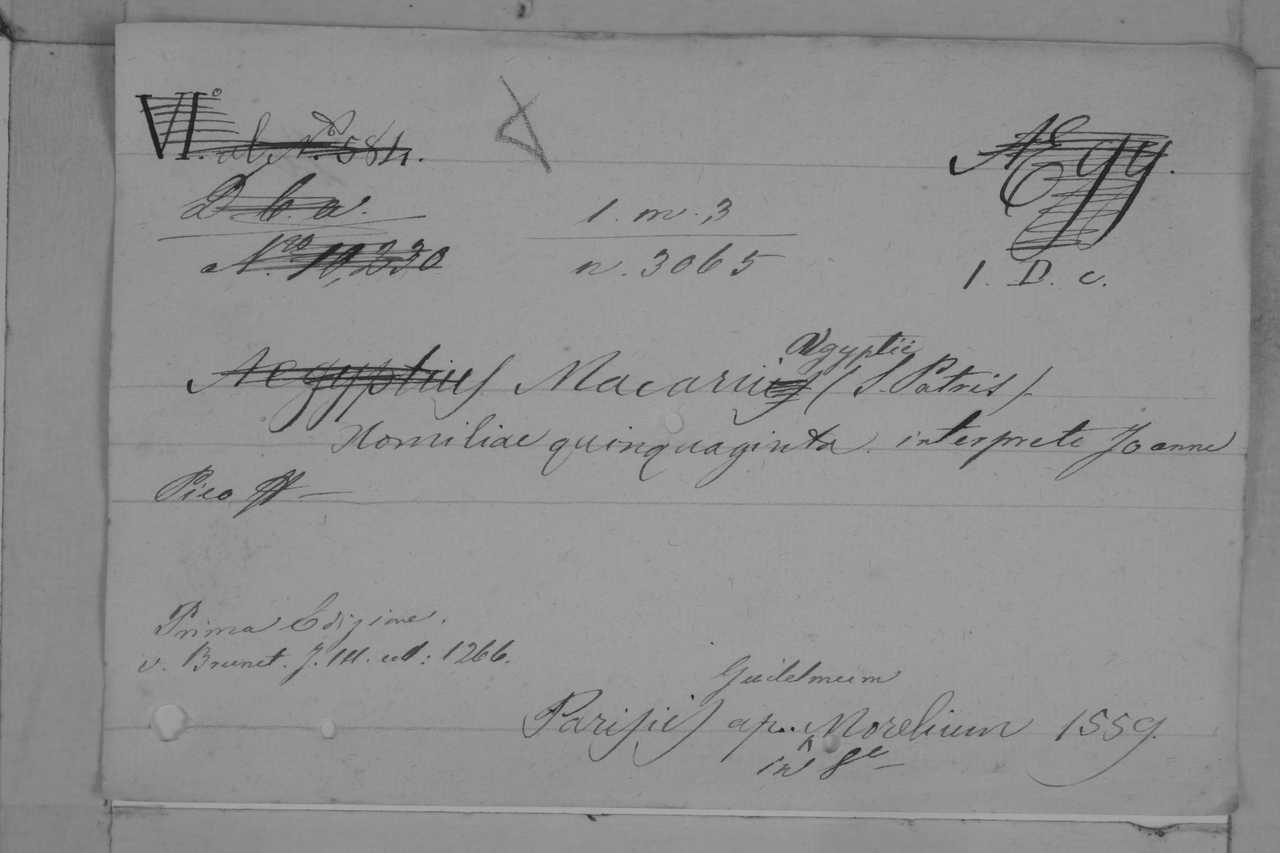 VI.° al N.° 584.
AEgy.
D. b. a.
1. m. 3
Nro. 10,230
n. 3065
1. D. c.
Aegyptius Macarius (S. Patris).
Aegyptii
Homiliae quinquaginta interprete Joanne
Pico
Prima Edizione.
v. Brunet. T. III. col: 1266.
Guilelmum
Parisiis ap. Morelium 1559.
in 8°